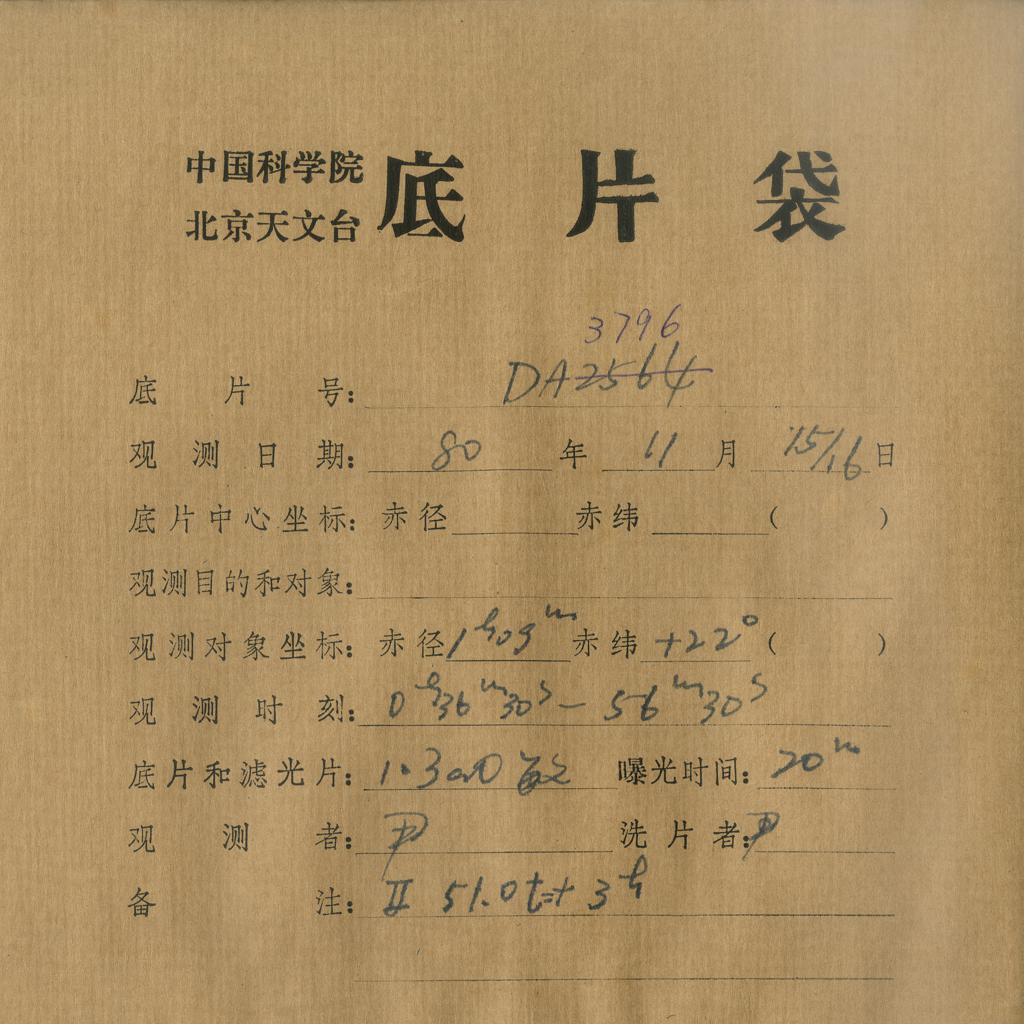 中国科学院
北京天文台
底片袋
3796
底片号：DA2564
观测日期：80年11月15/16日
底片中心坐标：赤径 赤纬 （ ）
观测目的和对象：
观测对象坐标：赤径1h09m赤纬+22°（ ）
观测时刻：0h36m30s－56m30s
底片和滤光片： 曝光时间：20m
观测者：尹 洗片者：尹
备注：II 51.0 t=+3h